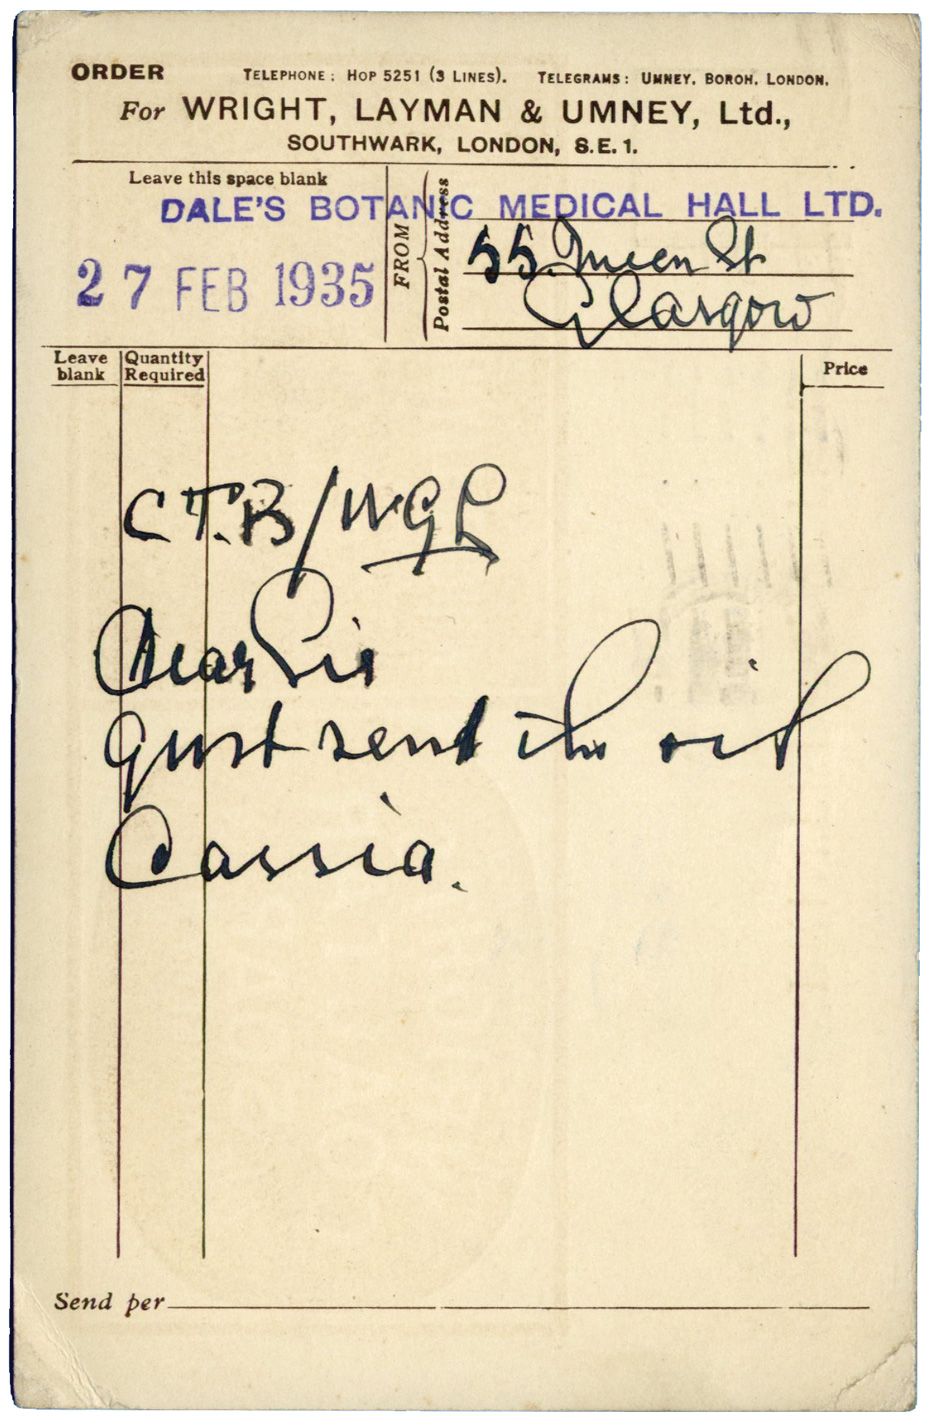 ORDER TELEPHONE: HOP 5251 (3 LINES). TELEGRAMS: UMNEY. BOROH. LONDON.
For WRIGHT, LAYMAN & UMNEY, Ltd.,
SOUTHWARK, LONDON, S.E.1.
Leave this space blank
27 FEB 1935
FROM
Postal Address
DALE'S BOTANIC MEDICAL HALL LTD.
55 Queen St
Glasgow
Leave blank
Quantity Required
Price
C T.B/WGL
Dear Sir
Just send the oil
Cassia.
Send per